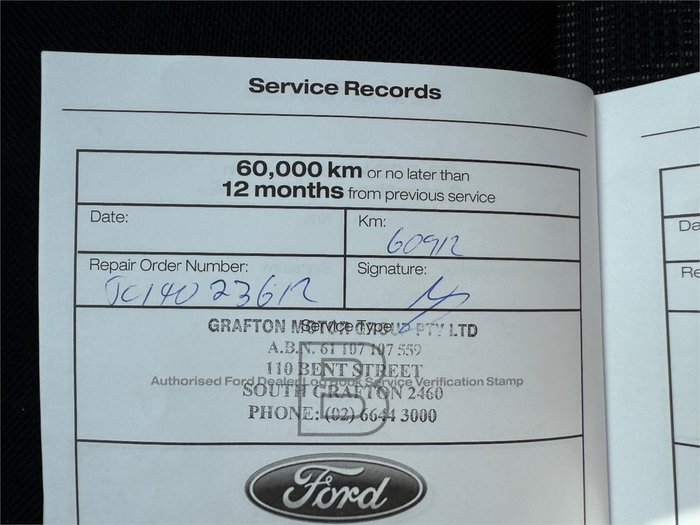 Service Records
60,000 km or no later than
12 months from previous service
Date:
Km:
60912
Repair Order Number:
JC14023612
Signature:
Service Type
GRAFTON MOTOR GROUP PTY LTD
A.B.N. 61 107 107 559
110 BENT STREET
Authorised Ford Dealer Log Book Service Verification Stamp
SOUTH GRAFTON 2460
PHONE: (02) 6644 3000
B
Ford
Da
Re